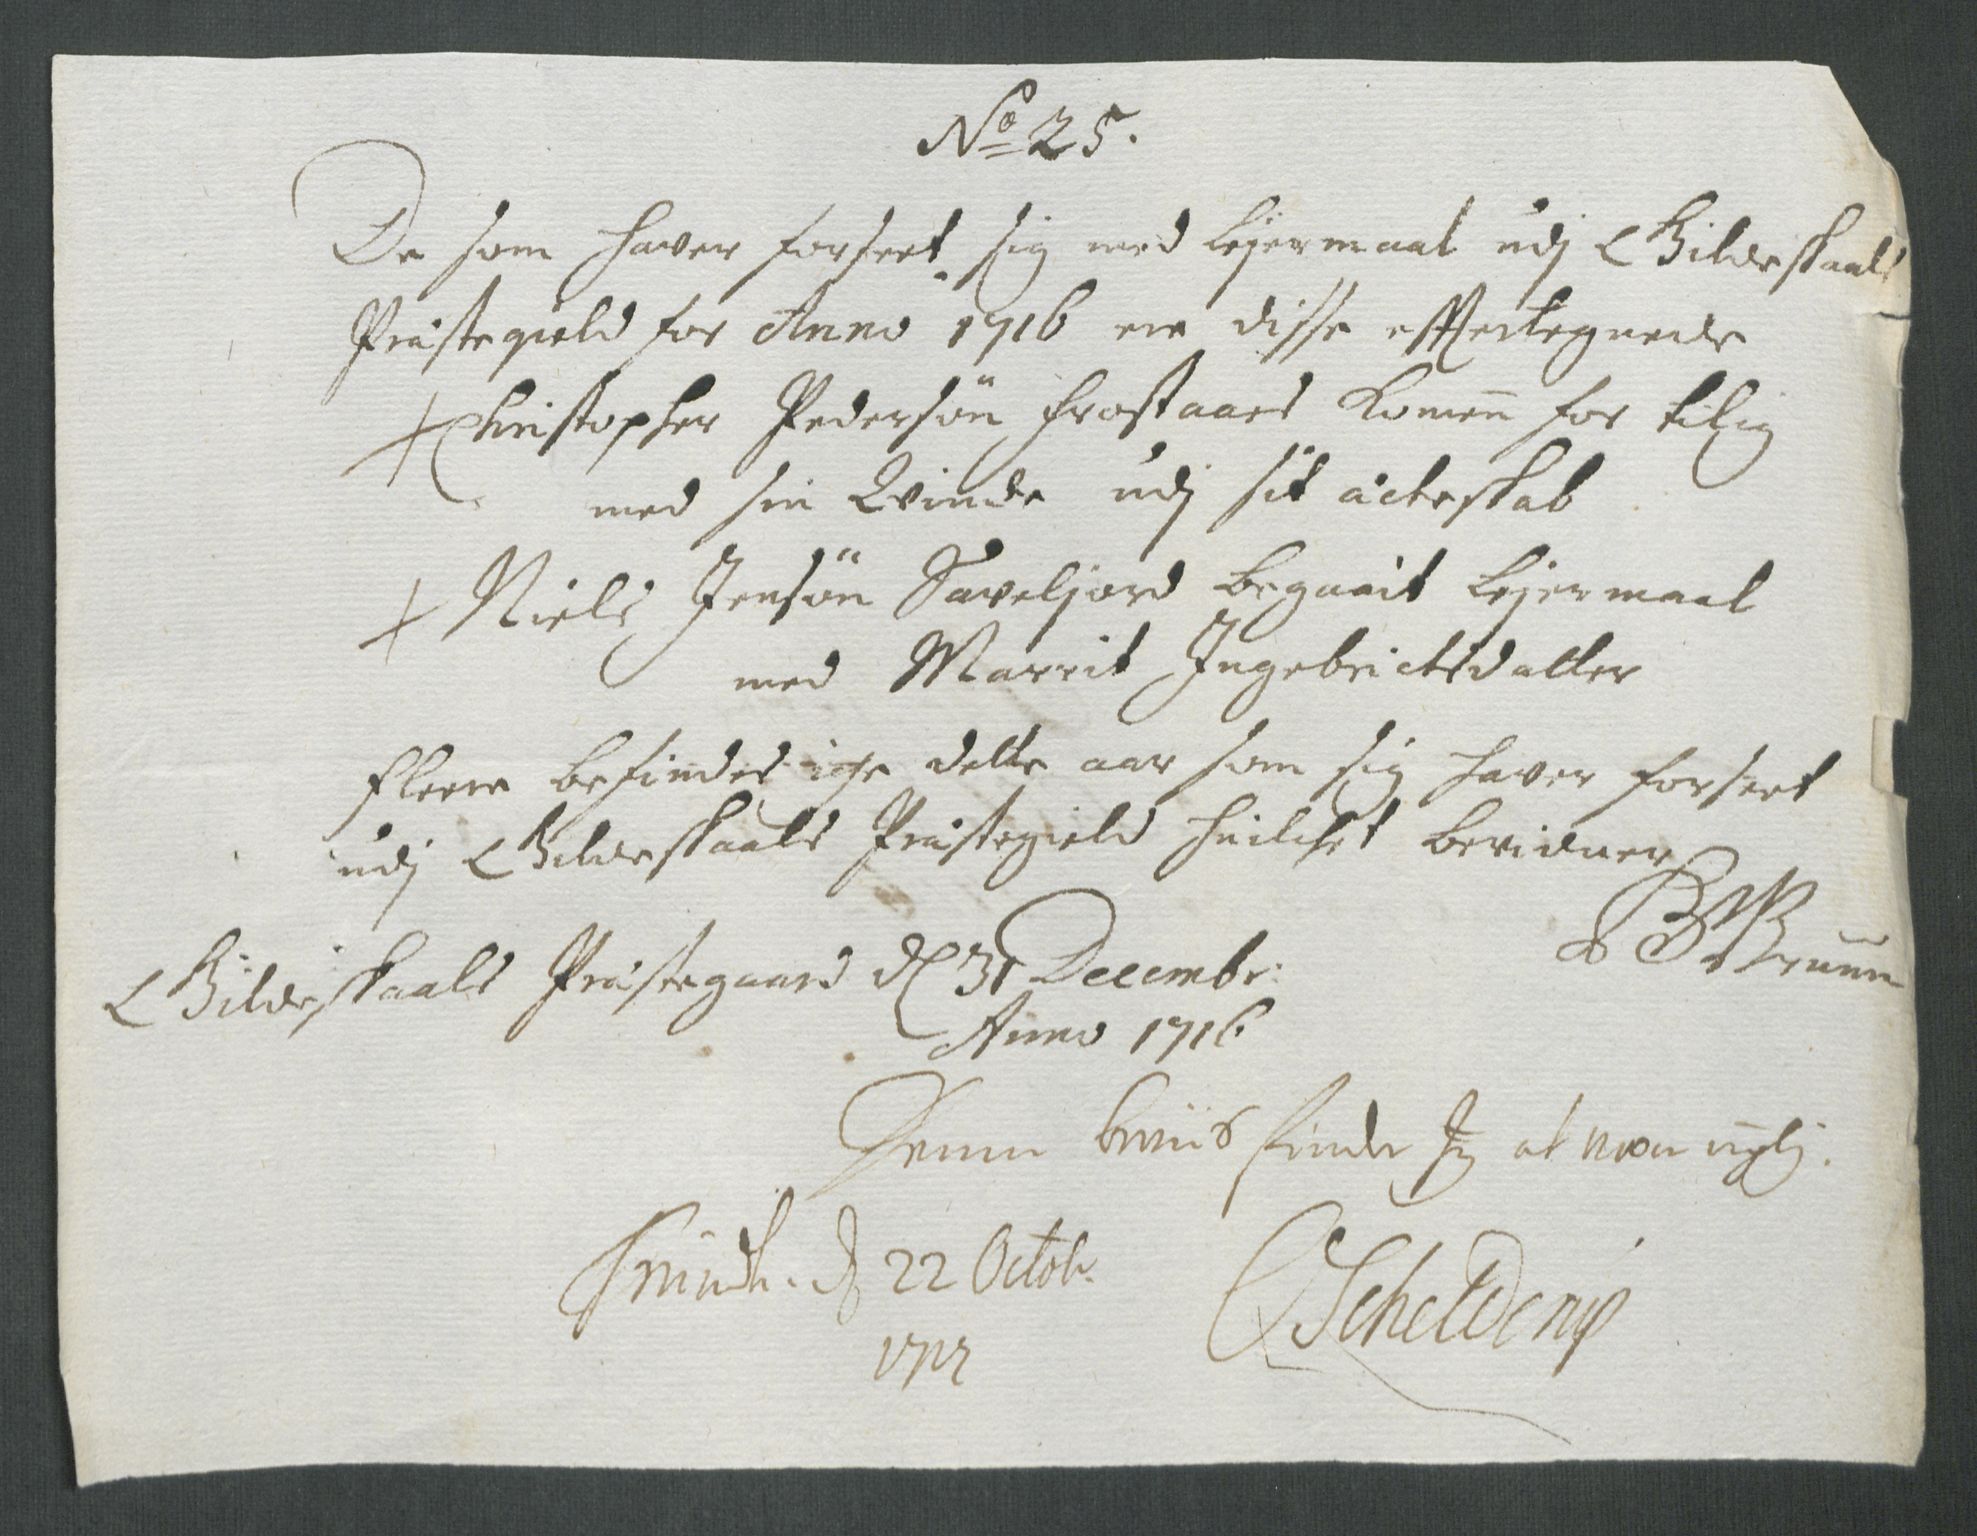 No 25.
De som haver forseet sig med lejermaal udj Gildeskaals
Præstegield for Anno 1716 ere disse efftertegnede
Christopher Pedersön Frostaaes komen for tilig
med sin Qvinde udj sit ächteskab
Niels Jensön Saveljord begaait lejermaal
med Marrit Ingebrictsdatter
fleere befindes iche dette aar som sig haver forseet
udj Gildeskaals Præstegield huilchet bevidner
Gildeskaals Præstegaard d 31 Decembr:
Anno 1716
B Bruun
Denne beviis finder Jeg at være rigtig.
Trundh. d 22 Octobr.
1717
Scheldrup